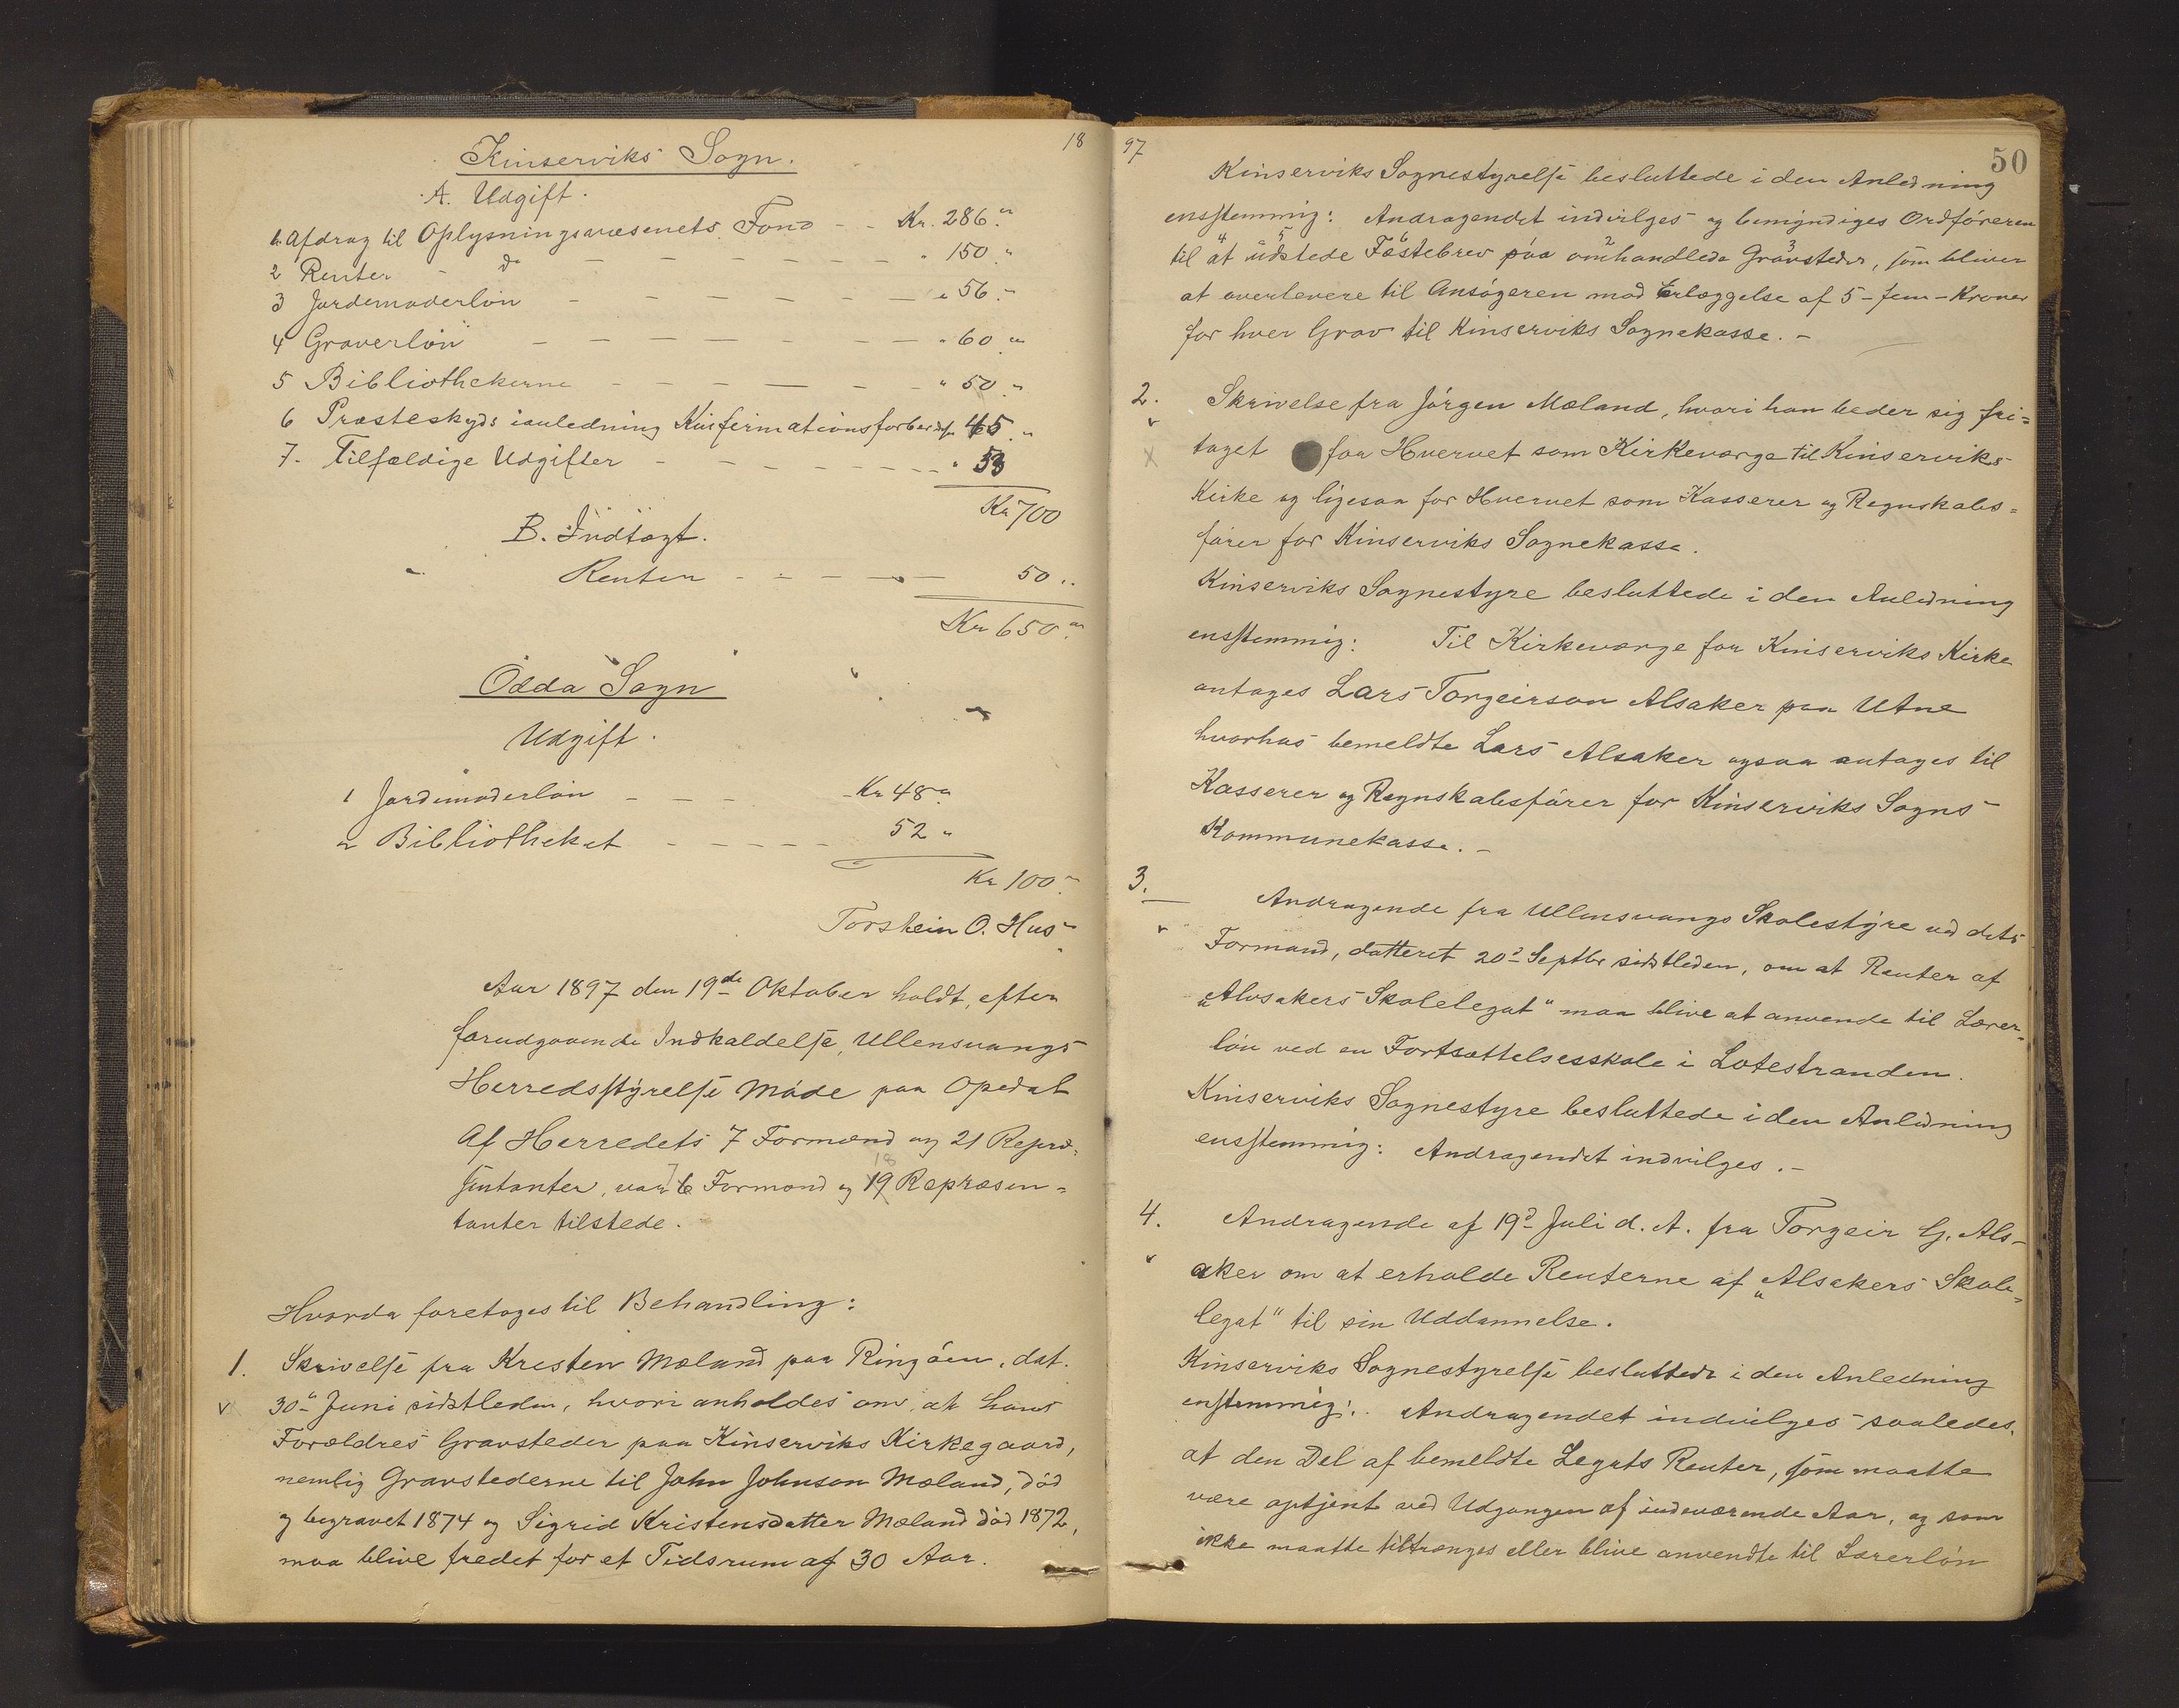 18
Kinserviks Sogn.
A. Udgift.
1. Afdrag til Oplysningsvæsenets Fond - - Kr. 286 "
2 Renter - do - - - - - - " 150 "
3 Jordemoderløn - - - - - - " 56 "
4 Graverløn - - - - - - - " 60 "
5 Bibliothekerne - - - - - - " 50 "
6 Præsteskyds ianledning Konfirmationsforbered. 45 "
7. Tilfældige Udgifter - - - - - - - " 53
Kr 700
B. Indtægt.
Renter - - - - - 50 "
Kr 650 "
Odda Sogn
Udgift.
1 Jordemoderløn - - - Kr 48 "
2 Bibliotheket - - - - - 52 "
Kr 100 "
Torstein O. Hus
Aar 1897 den 19de Oktober holdt, efter
forudgaaende Indkaldelse, Ullensvangs
Herredsstyrelse Møde paa Opedal
Af Herredets 7 Formænd og 21 Repræ-
sentanter, var 7 6 Formænd og 18 19 Repræsen-
tanter tilstede.
Hvorda foretoges til Behandling:
1. Skrivelse fra Kresten Mæland paa Ringøen, dat.
v 30" Juni sidstleden, hvori anholdes om, at hans
Forældres Gravsteder paa Kinserviks Kirkegaard,
nemlig Gravstederne til John Johnson Mæland, død
og begravet 1874 og Sigrid Kristensdatter Mæland død 1872,
maa blive fredet for et Tidsrum af 30 Aar.
97
50
Kinserviks Sognestyrelse besluttede i den Anledning
ensstemmig: Andragendet indvilges og bemyndiges Ordføreren
til at udstede Fæstebrev paa omhandlede Gravsteder, som bliver
at overlevere til Ansøgeren mod Erlæggelse af 5 - fem - Kroner
for hver Grav til Kinserviks Sognekasse. -
2. Skrivelse fra Jørgen Mæland, hvori han beder sig fri-
v
x taget for Hvervet som Kirkeværge til Kinserviks
Kirke og ligesaa for Hvervet som Kasserer og Regnskabs-
fører for Kinserviks Sognekasse.
Kinserviks Sognestyre besluttede i den Anledning
ensstemmig: Til Kirkeværge for Kinserviks Kirke
antages Lars Torgeirson Alsaker paa Utne
hvorhos bemeldte Lars Alsaker ogsaa antages til
Kasserer og Regnskabsfører for Kinserviks Sogns
Kommunekasse. -
3. Andragende fra Ullensvangs Skolestyre ved dets
v Formand, datteret 20d Septbr sidstleden, om at Renter af
"Alsakers Skolelegat" maa blive at anvende til Lærer-
løn ved en Fortsættelsesskole i Lotestranden.
Kinserviks Sognestyre besluttede i den Anledning
ensstemmig: Andragendet indvilges. -
4. Andragende af 19d Juli d. A. fra Torgeir G. Als-
v aker om at erholde Renterne af "Alsakers Skole-
legat" til sin Uddannelse.
Kinserviks Sognestyrelse besluttede i den Anledning
enstemmig: Andragendet indvilges saaledes,
at den Del af bemeldte Legats Renter, som maatte
være optjent ved Udgangen af indeværende Aar, og som
ikke maatte tiltrænges eller blive anvendte til Lærerløn